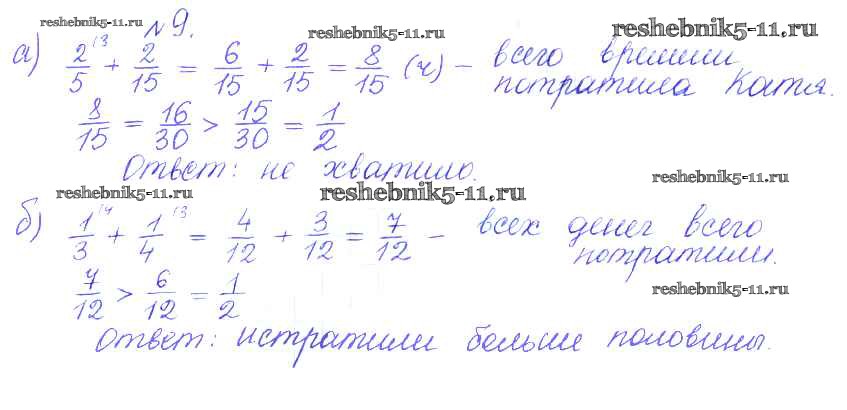 reshebnik5-11.ru
№ 9.
reshebnik5-11.ru
reshebnik5-11.ru
а) 2/5 ⁽³ + 2/15 = 6/15 + 2/15 = 8/15 (ч) – всего времени
потратила Катя.
8/15 = 16/30 > 15/30 = 1/2
Ответ: не хватило.
reshebnik5-11.ru
reshebnik5-11.ru
reshebnik5-11.ru
б) 1/3 ⁽⁴ + 1/4 ⁽³ = 4/12 + 3/12 = 7/12 – всех денег всего
потратили.
7/12 > 6/12 = 1/2
reshebnik5-11.ru
Ответ: истратили больше половины.